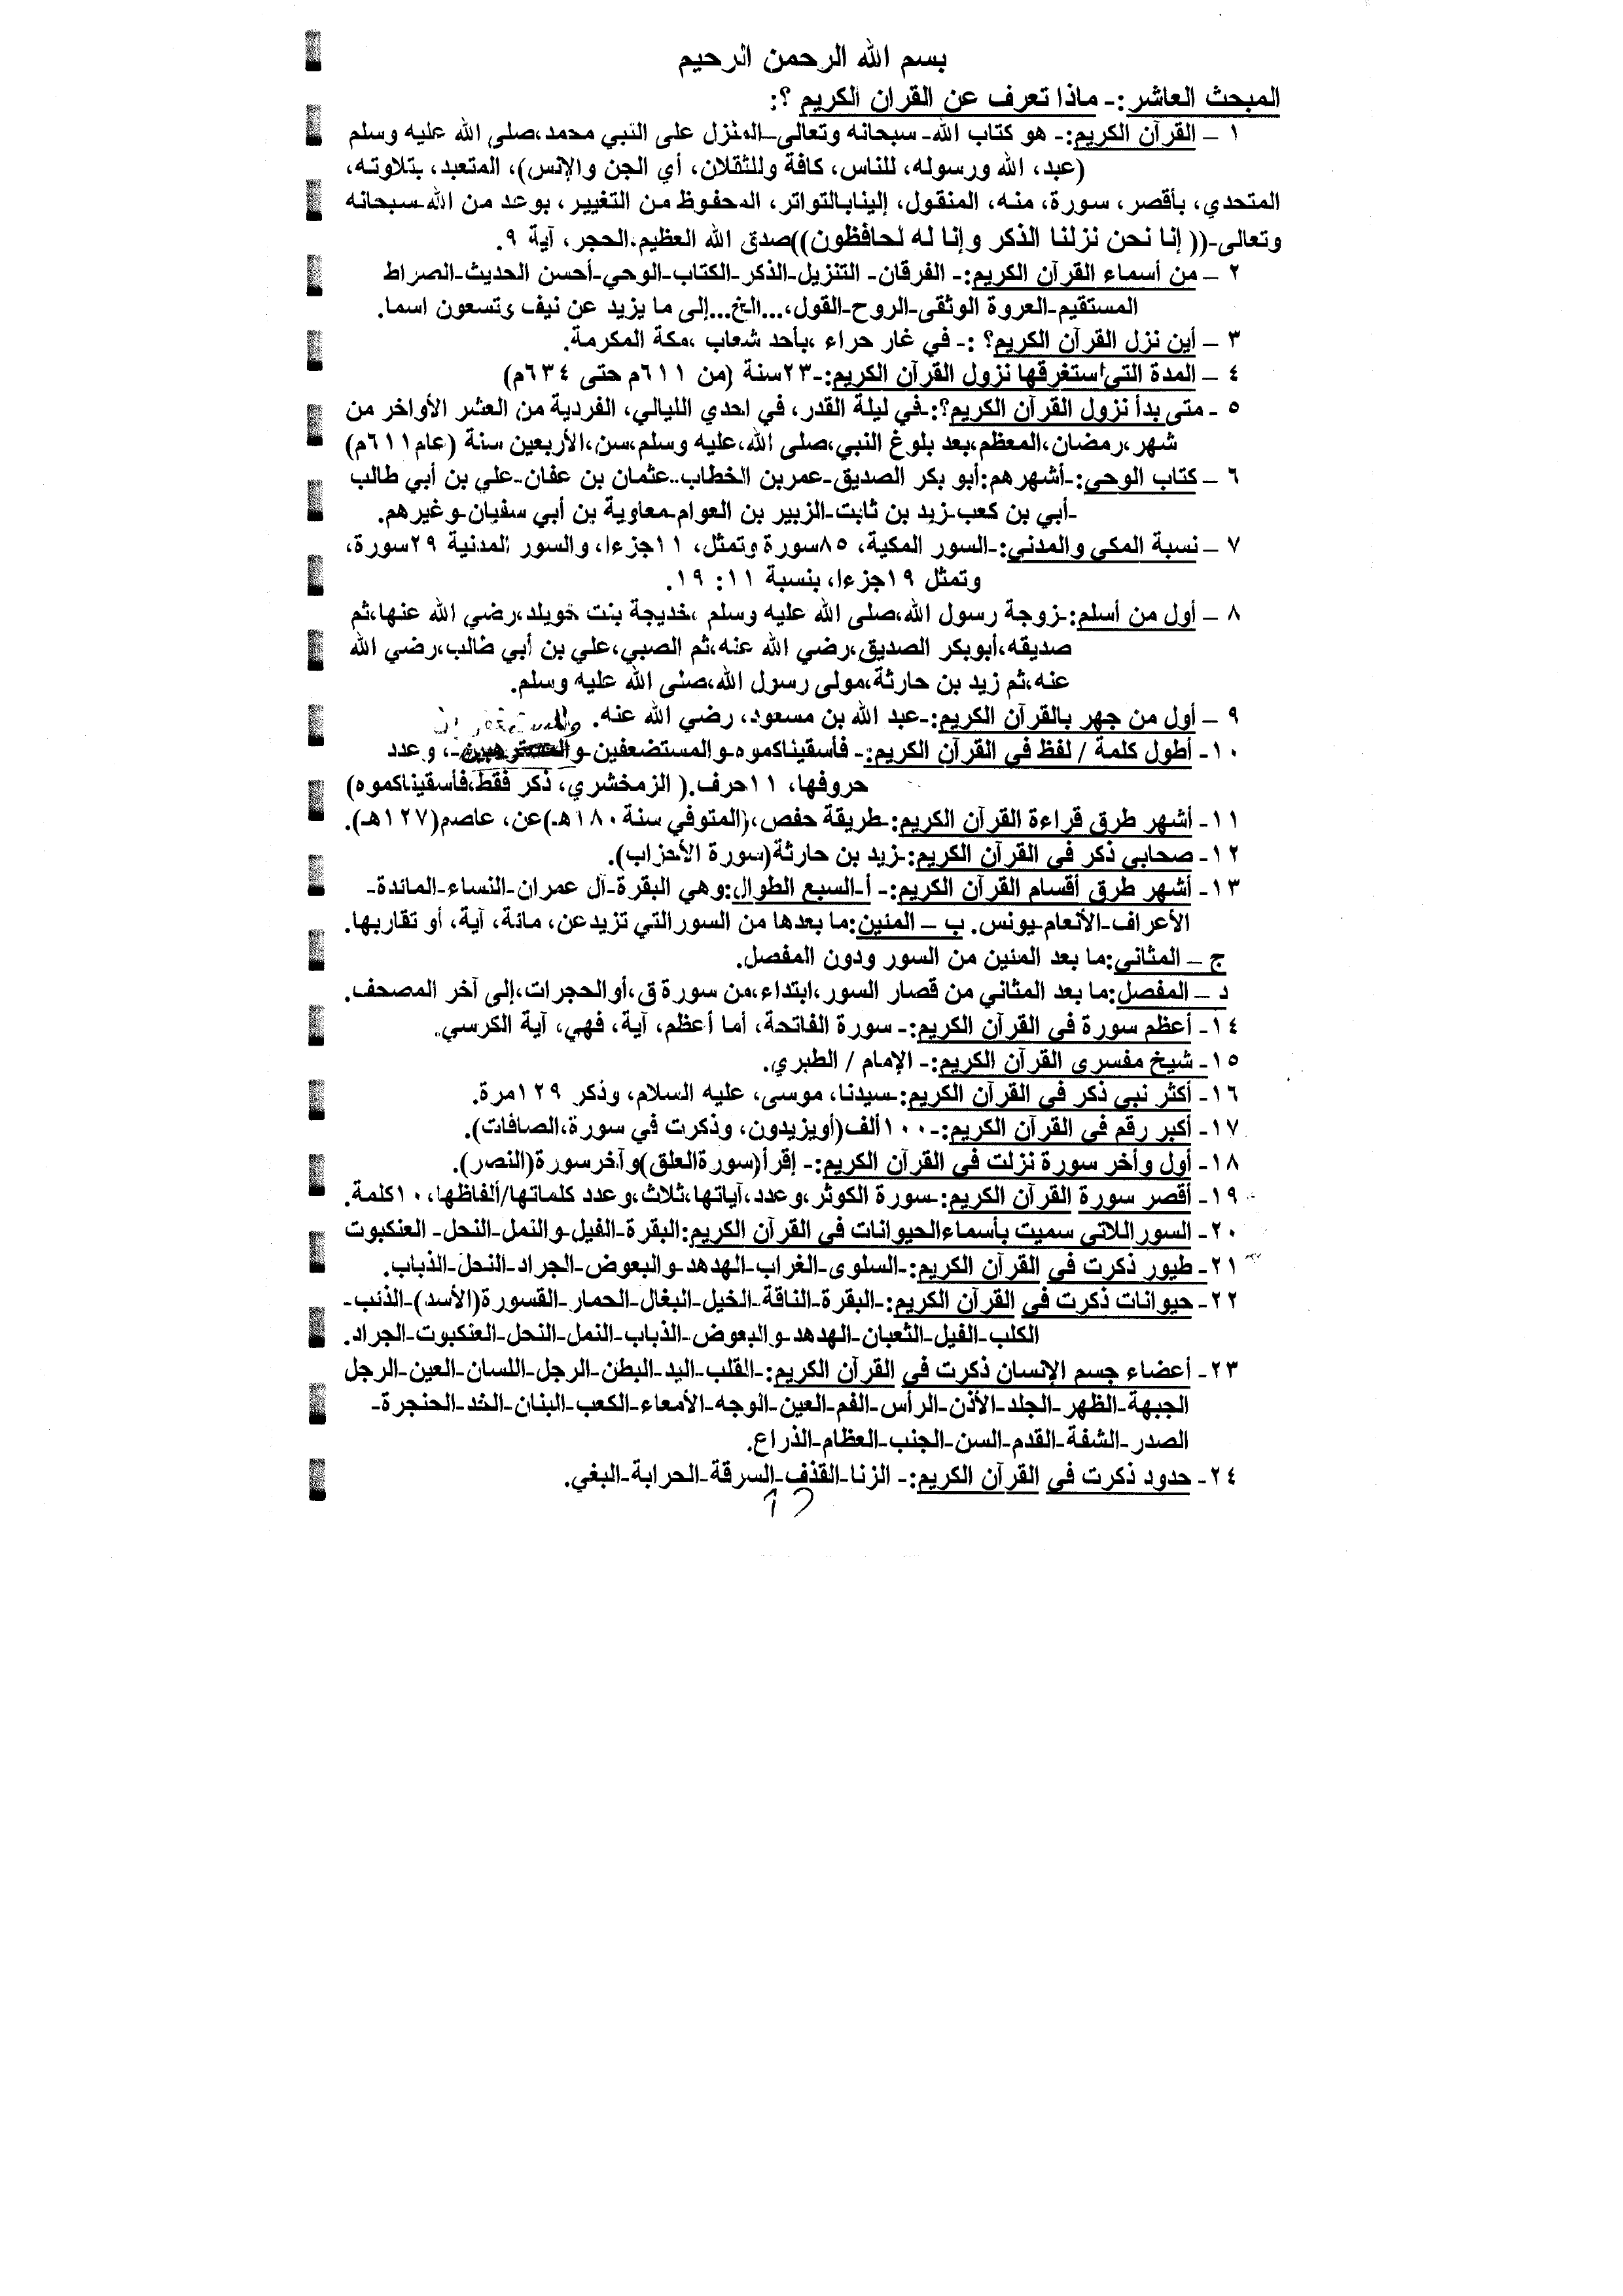 بسم الله الرحمن الرحيم
المبحث العاشر:- ماذا تعرف عن القران الكريم ؟:
١ – القرآن الكريم:- هو كتاب الله- سبحانه وتعالى–المنزل على النبي محمد،صلى الله عليه وسلم
(عبد، الله ورسوله، للناس، كافة وللثقلان، أي الجن والإنس)، المتعبد، بتلاوته،
المتحدي، بأقصر، سورة، منه، المنقول، إلينابالتواتر، المحفوظ من التغيير، بوعد من الله-سبحانه
وتعالى-(( إنا نحن نزلنا الذكر وإنا له لحافظون))صدق الله العظيم،الحجر، آية ٩.
٢ – من أسماء القرآن الكريم:- الفرقان- التنزيل-الذكر-الكتاب-الوحي-أحسن الحديث-الصراط
المستقيم-العروة الوثقى-الروح-القول،...الخ...إلى ما يزيد عن نيف وتسعون اسما.
٣ – أين نزل القرآن الكريم؟ :- في غار حراء ،بأحد شعاب ،مكة المكرمة.
٤ – المدة التي استغرقها نزول القرآن الكريم:-٢٣سنة (من ٦١١م حتى ٦٣٤م)
٥ - متى بدأ نزول القرآن الكريم؟:-في ليلة القدر، في احدي الليالي، الفردية من العشر الأواخر من
شهر،رمضان،المعظم،بعد بلوغ النبي،صلى الله،عليه وسلم،سن،الأربعين سنة (عام٦١١م)
٦ – كتاب الوحي:-أشهرهم:أبو بكر الصديق-عمربن الخطاب-عثمان بن عفان-علي بن أبي طالب
-أبي بن كعب-زيد بن ثابت-الزبير بن العوام-معاوية بن أبي سفيان-وغيرهم.
٧ – نسبة المكي والمدني:-السور المكية، ٨٥سورة وتمثل، ١١جزءا، والسور المدنية ٢٩سورة،
وتمثل ١٩جزءا، بنسبة ١١: ١٩.
٨ – أول من أسلم:-زوجة رسول الله،صلى الله عليه وسلم ،خديجة بنت خويلد،رضي الله عنها،ثم
صديقه،أبوبكر الصديق،رضي الله عنه،ثم الصبي،علي بن أبي طالب،رضي الله
عنه،ثم زيد بن حارثة،مولى رسول الله،صلى الله عليه وسلم.
٩ – أول من جهر بالقرآن الكريم:-عبد الله بن مسعود، رضي الله عنه.
١٠- أطول كلمة / لفظ في القرآن الكريم:- فأسقيناكموه-والمستضعفين-، وعدد
حروفها، ١١حرف.( الزمخشري، ذكر فقط،فأسقيناكموه)
١١- أشهر طرق قراءة القرآن الكريم:-طريقة حفص،(المتوفي سنة ١٨٠هـ)عن، عاصم(١٢٧هـ).
١٢- صحابي ذكر في القرآن الكريم:-زيد بن حارثة(سورة الأحزاب).
١٣- أشهر طرق أقسام القرآن الكريم:- أ-السبع الطوال:وهي البقرة-آل عمران-النساء-المائدة-
الأعراف-الأنعام-يونس. ب – المئين:ما بعدها من السورالتي تزيدعن، مائة، آية، أو تقاربها.
ج – المثاني:ما بعد المئين من السور ودون المفصل.
د – المفصل:ما بعد المثاني من قصار السور،ابتداء،من سورة ق،أوالحجرات،إلى آخر المصحف.
١٤- أعظم سورة في القرآن الكريم:- سورة الفاتحة، أما أعظم، آية، فهي، آية الكرسي.
١٥- شيخ مفسري القرآن الكريم:- الإمام / الطبري.
١٦- أكثر نبي ذكر في القرآن الكريم:-سيدنا، موسى، عليه السلام، وذكر ١٢٩مرة.
١٧- أكبر رقم في القرآن الكريم:-١٠٠ألف(أويزيدون، وذكرت في سورة،الصافات).
١٨- أول وأخر سورة نزلت في القرآن الكريم:- إقرأ(سورةالعلق)وآخرسورة(النصر).
١٩- أقصر سورة القرآن الكريم:-سورة الكوثر،وعدد،آياتها،ثلاث،وعدد كلماتها/ألفاظها،١٠كلمة.
٢٠- السوراللاتي سميت بأسماءالحيوانات في القرآن الكريم:البقرة-الفيل-والنمل-النحل- العنكبوت
٢١- طيور ذكرت في القرآن الكريم:-السلوى-الغراب-الهدهد-والبعوض-الجراد-النحل-الذباب.
٢٢- حيوانات ذكرت في القرآن الكريم:-البقرة-الناقة-الخيل-البغال-الحمار-القسورة(الأسد)-الذئب-
الكلب-الفيل-الثعبان-الهدهد-والبعوض-الذباب-النمل-النحل-العنكبوت-الجراد.
٢٣- أعضاء جسم الإنسان ذكرت في القرآن الكريم:-القلب-اليد-البطن-الرجل-اللسان-العين-الرجل
الجبهة-الظهر-الجلد-الأذن-الرأس-الفم-العين-الوجه-الأمعاء-الكعب-البنان-الخد-الحنجرة-
الصدر-الشفة-القدم-السن-الجنب-العظام-الذراع.
٢٤- حدود ذكرت في القرآن الكريم:- الزنا-القذف-السرقة-الحرابة-البغي.